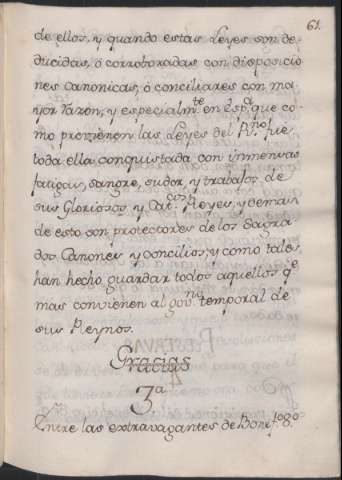 61.
de ellos, y quando estas Leyes son de-
ducidas, ó corroboradas con disposicio
nes canonicas, ó conciliares con ma
yor razon, y especialm.te en Esp.a que co-
mo previenen las Leyes del R.no fue
toda ella conquistada con inmensas
fatigas, sangre, sudor, y trabalos de
sus Gloriosos y Cat.cos Reyes, y demas
de esto son protectores de los Sagra
dos Canones y concilios; y como tales,
han hecho guardar todos aquellos q.e
mas convienen al gov.no temporal de
sus Reynos.
Gracias
3.a
Entre las extravagantes de Bonif.o 8.o